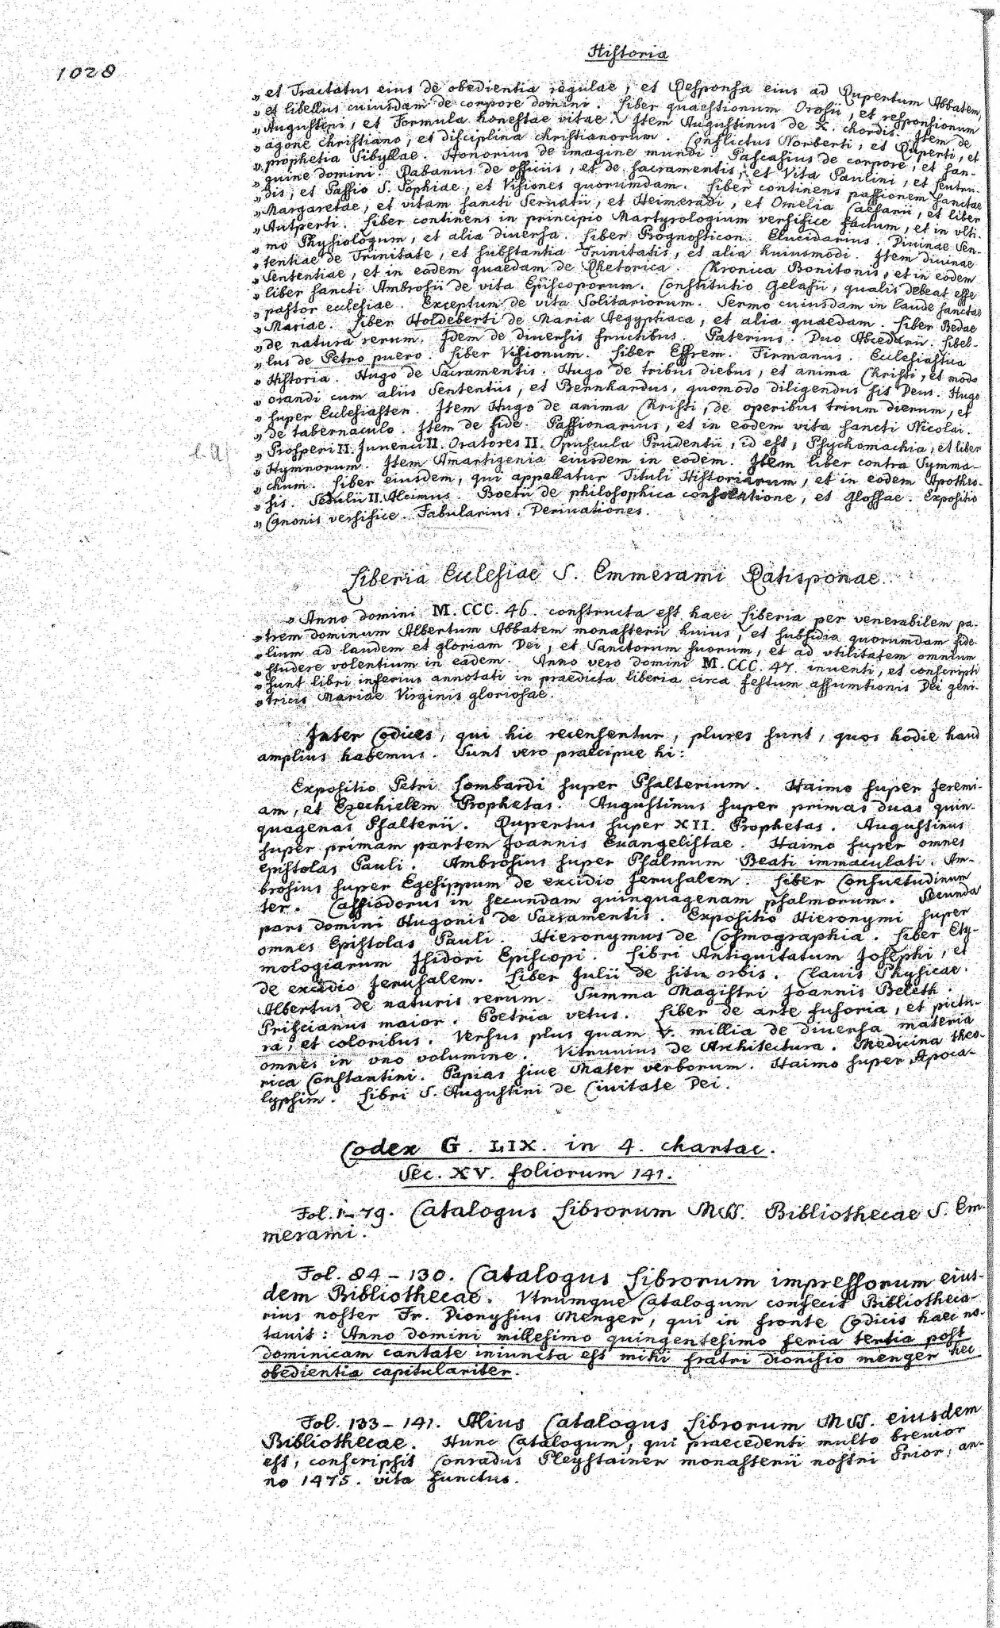 Historia
1028
„ et Tractatus eius de obedientia regulae, et Responsa eius ad Rupentum Abbatem,
„ et libellus cuiusdam de corpore domini. Liber quaestionum Orosii, et responsionum
„ Augustini, et Formula honestae vitae. Item Augustinus de X. chordis. Item de
„ agone christiano, et disciplina christianorum. Conflictus Norberti, et Ruperti, et
„ prophetia Sibyllae. Honorius de imagine mundi. Pascasius de corpore, et san-
„ guine domini. Rabanus de officiis, et de sacramentis, et Vita Paulini, et senten-
„ dis, et Passio S. Sophiae, et Visiones quorumdam. Liber continens passionem sanctae
„ Margaretae, et vitam sancti Servatii, et Heimeradi, et Omelia Caesarii, et liber
„ Autperti. Liber continens in principio Martyrologium versifice factum, et in vlti-
„ mo Physiologum, et alia diuersa. Liber Prognosticon. Elucidarius. Diuinae Sen-
„ tentiae de Trinitate, et substantia Trinitatis, et alia huiusmodi. Item diuinae
„ Sententiae, et in eodem quaedam de Rhetorica. Chronica Bonitonis, et in eodem
„ liber sancti Ambrosii de vita Episcoporum. Constitutio Gelasii, qualis debeat esse
„ pastor ecclesiae. Exceptum de vita Solitariorum. Sermo cuiusdam in laude sanctae
„ Mariae. Liber Holdeberti de Maria Aegyptiaca, et alia quaedam. Liber Bedae
„ de natura rerum. Idem de diuersis fructibus. Paterius. Duo Abcedarii. Libel-
„ lus de Petro puero. Liber Visionum. Liber Effrem. Firmanus. Ecclesiastica
„ Historia. Hugo de Sacramentis. Hugo de tribus diebus, et anima Christi, et modo
„ orandi cum aliis Sententiis, et Bernhardus, quomodo diligendus sit Deus. Hugo
„ super Ecclesiasten. Item Hugo de anima Christi, de operibus trium dierum, et
„ de tabernaculo. Item de fide. Passionarius, et in eodem vita sancti Nicolai.
„ Prosperi II. Juuenci II. Oratores II. Opuscula Prudentii, id est, Psychomachia, et liber
„ Hymnorum. Item Amartigenia eiusdem in eodem. Item liber contra Symma-
„ chum. Liber eiusdem, qui appellatur Tituli Historiarum, et in eodem Apotheo-
„ sis. Sedulii II. Alcimus. Boetii de philosophica consolatione, et glossae. Expositio
„ Canonis versifice. Fabularius. Deriuationes.
Liberia Ecclesiae S. Emmerami Ratisponae.
„ Anno domini M. CCC. 46. constructa est haec Liberia per venerabilem pa-
„ trem dominum Albertum Abbatem monasterii huius, et subsidia quorumdam fide-
„ lium ad laudem et gloriam Dei, et Sanctorum suorum, et ad vtilitatem omnium
„ studere volentium in eadem. Anno vero domini M. CCC. 47. inuenti, et conscripti
„ sunt libri inferius annotati in praedicta liberia circa festum assumtionis Dei geni-
„ tricis Mariae Virginis gloriosae.
Inter Codices, qui hic recensentur, plures sunt, quos hodie haud
amplius habemus. Sunt vero praecipue hi:
Expositio Petri Lombardi super Psalterium. Haimo super Jeremi-
am, et Ezechielem Prophetas. Augustinus super primas duas quin-
quagenas Psalterii. Rupertus super XII. Prophetas. Augustinus
super primam partem Joannis Euangelistae. Haimo super omnes
epistolas Pauli. Ambrosius super Psalmum Beati immaculati. Am-
brosius super Egesippum de excidio Jerusalem. Liber Consuetudinum
ter. Cassiodorus in secundam quinquagenam psalmorum. Secunda
pars domini Hugonis de Sacramentis. Expositio Hieronymi super
omnes Epistolas Pauli. Hieronymus de Cosmographia. Liber Ety-
mologiarum Isidori Episcopi. Libri Antiquitatum Josephi, et
de excidio Jerusalem. Liber Julii de situ orbis. Clauis Physicae.
Albertus de naturis rerum. Summa Magistri Joannis Beleth.
Priscianus maior. Poetria vetus. Liber de arte fusoria, et pictu-
ra, et coloribus. Versus plus quam V. millia de diuersa materia
omnes in vno volumine. Vitruuius de Architectura. Medicina theo-
rica Constantini. Papias siue Mater verborum. Haimo super Apoca-
lypsim. Libri S. Augustini de Ciuitate Dei.
Codex G. LIX. in 4. chartac.
Sec. XV. foliorum 141.
Fol. 1–79. Catalogus Librorum MSS. Bibliothecae S. Em-
merami.
Fol. 84 – 130. Catalogus Librorum impressorum eius-
dem Bibliothecae. Vtrumque Catalogum confecit Bibliotheca-
rius noster Fr. Dionysius Menger, qui in fronte Codicis haec no-
tauit: Anno domini millesimo quingentesimo feria tertia post
dominicam cantate iniuncta est mihi fratri dionisio menger hec
obedientia capitulariter.
Fol. 133 – 141. Alius Catalogus Librorum MSS. eiusdem
Bibliothecae. Hunc Catalogum, qui praecedenti multo breuior
est, conscripsit Conradus Pleystainer monasterii nostri Prior, an-
no 1475. vita functus.